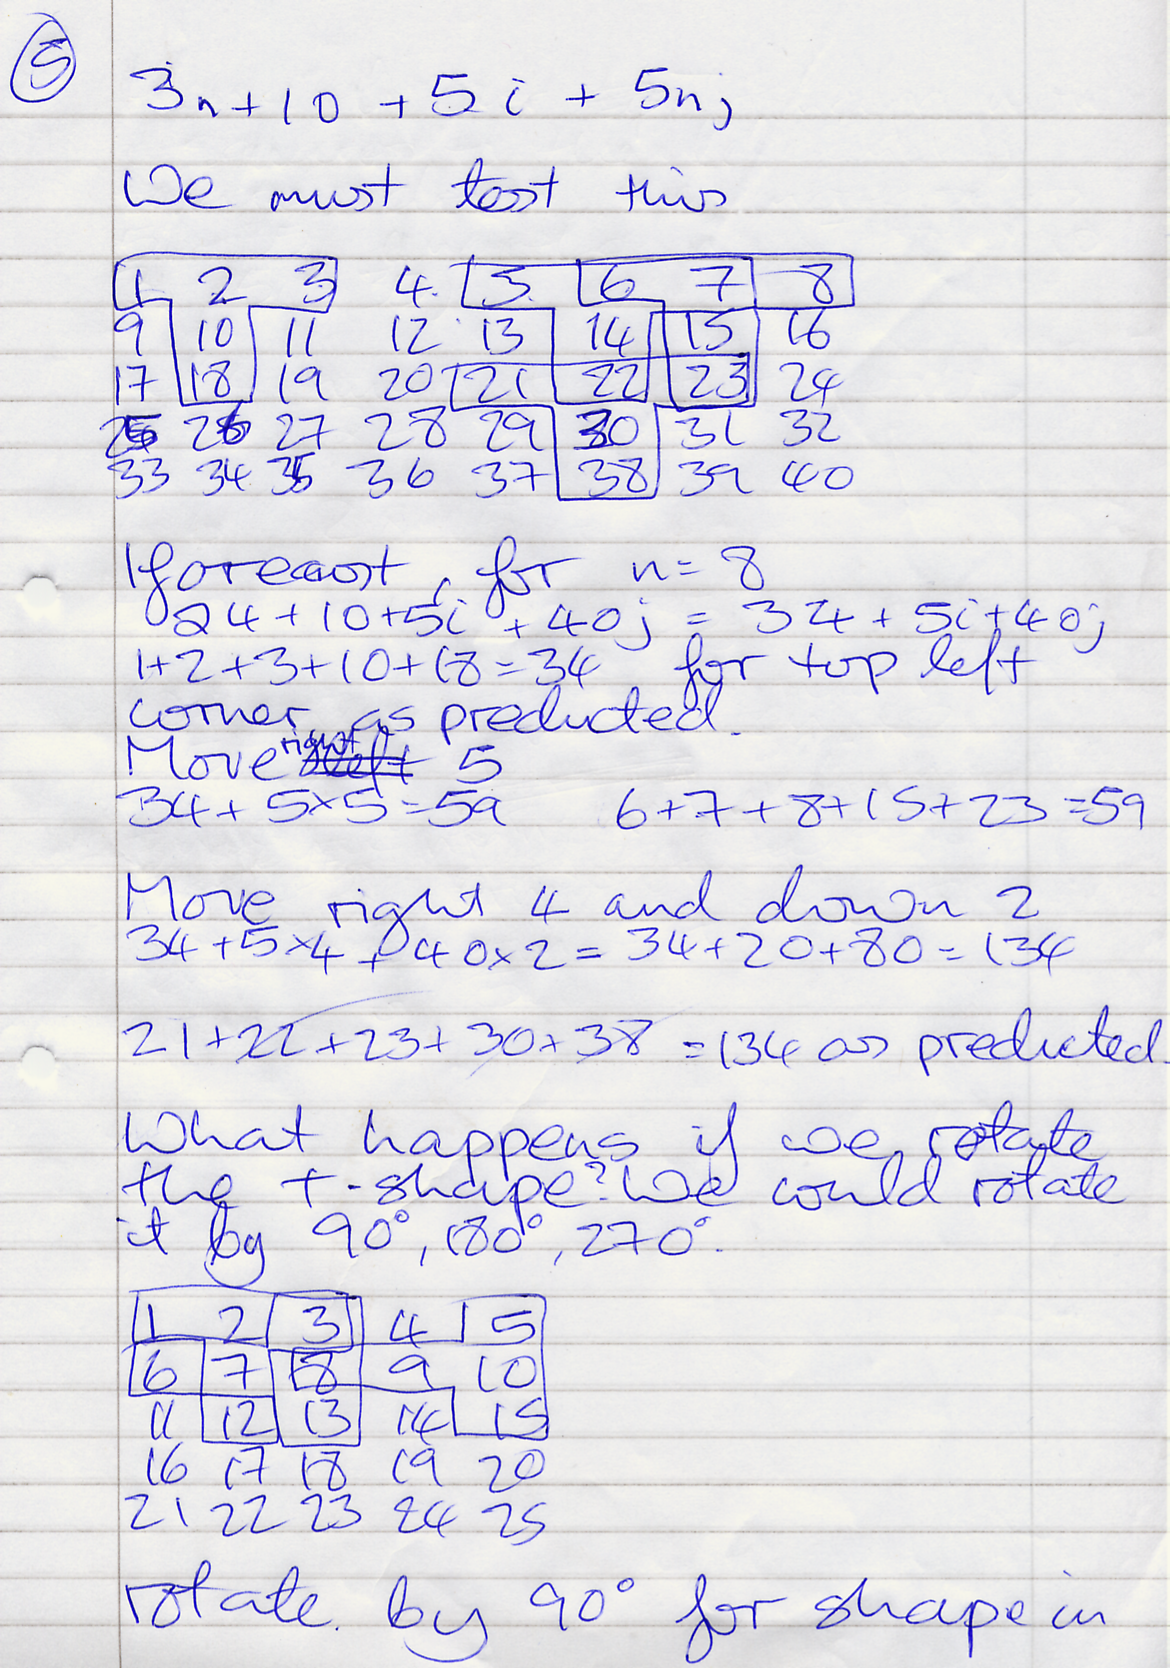 5
3n+10 + 5i + 5nj
We must test this
1 2 3 4 5 6 7 8
9 10 11 12 13 14 15 16
17 18 19 20 21 22 23 24
25 26 27 28 29 30 31 32
33 34 35 36 37 38 39 40
I forecast, for n=8
24+10+5i+40j = 34+5i+40j
1+2+3+10+18=34 for top left
corner as predicted.
Move right 5
34+5×5=59 6+7+8+15+23=59
Move right 4 and down 2
34+5×4+40×2=34+20+80=134
21+22+23+30+38 =134 as predicted.
What happens if we rotate
the t-shape? We could rotate
it by 90°, 180°, 270°.
1 2 3 4 5
6 7 8 9 10
11 12 13 14 15
16 17 18 19 20
21 22 23 24 25
rotate by 90° for shape in